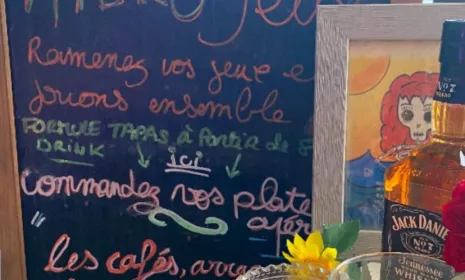 Ramenez vos jeux e
jouons ensemble
FORMULE TAPAS à Partir de 8
DRINK
ici
commandez vos plate
apér
les cafés, arro
JACK DANIEL
Nº7
Tennessee
WHISK
Nº7